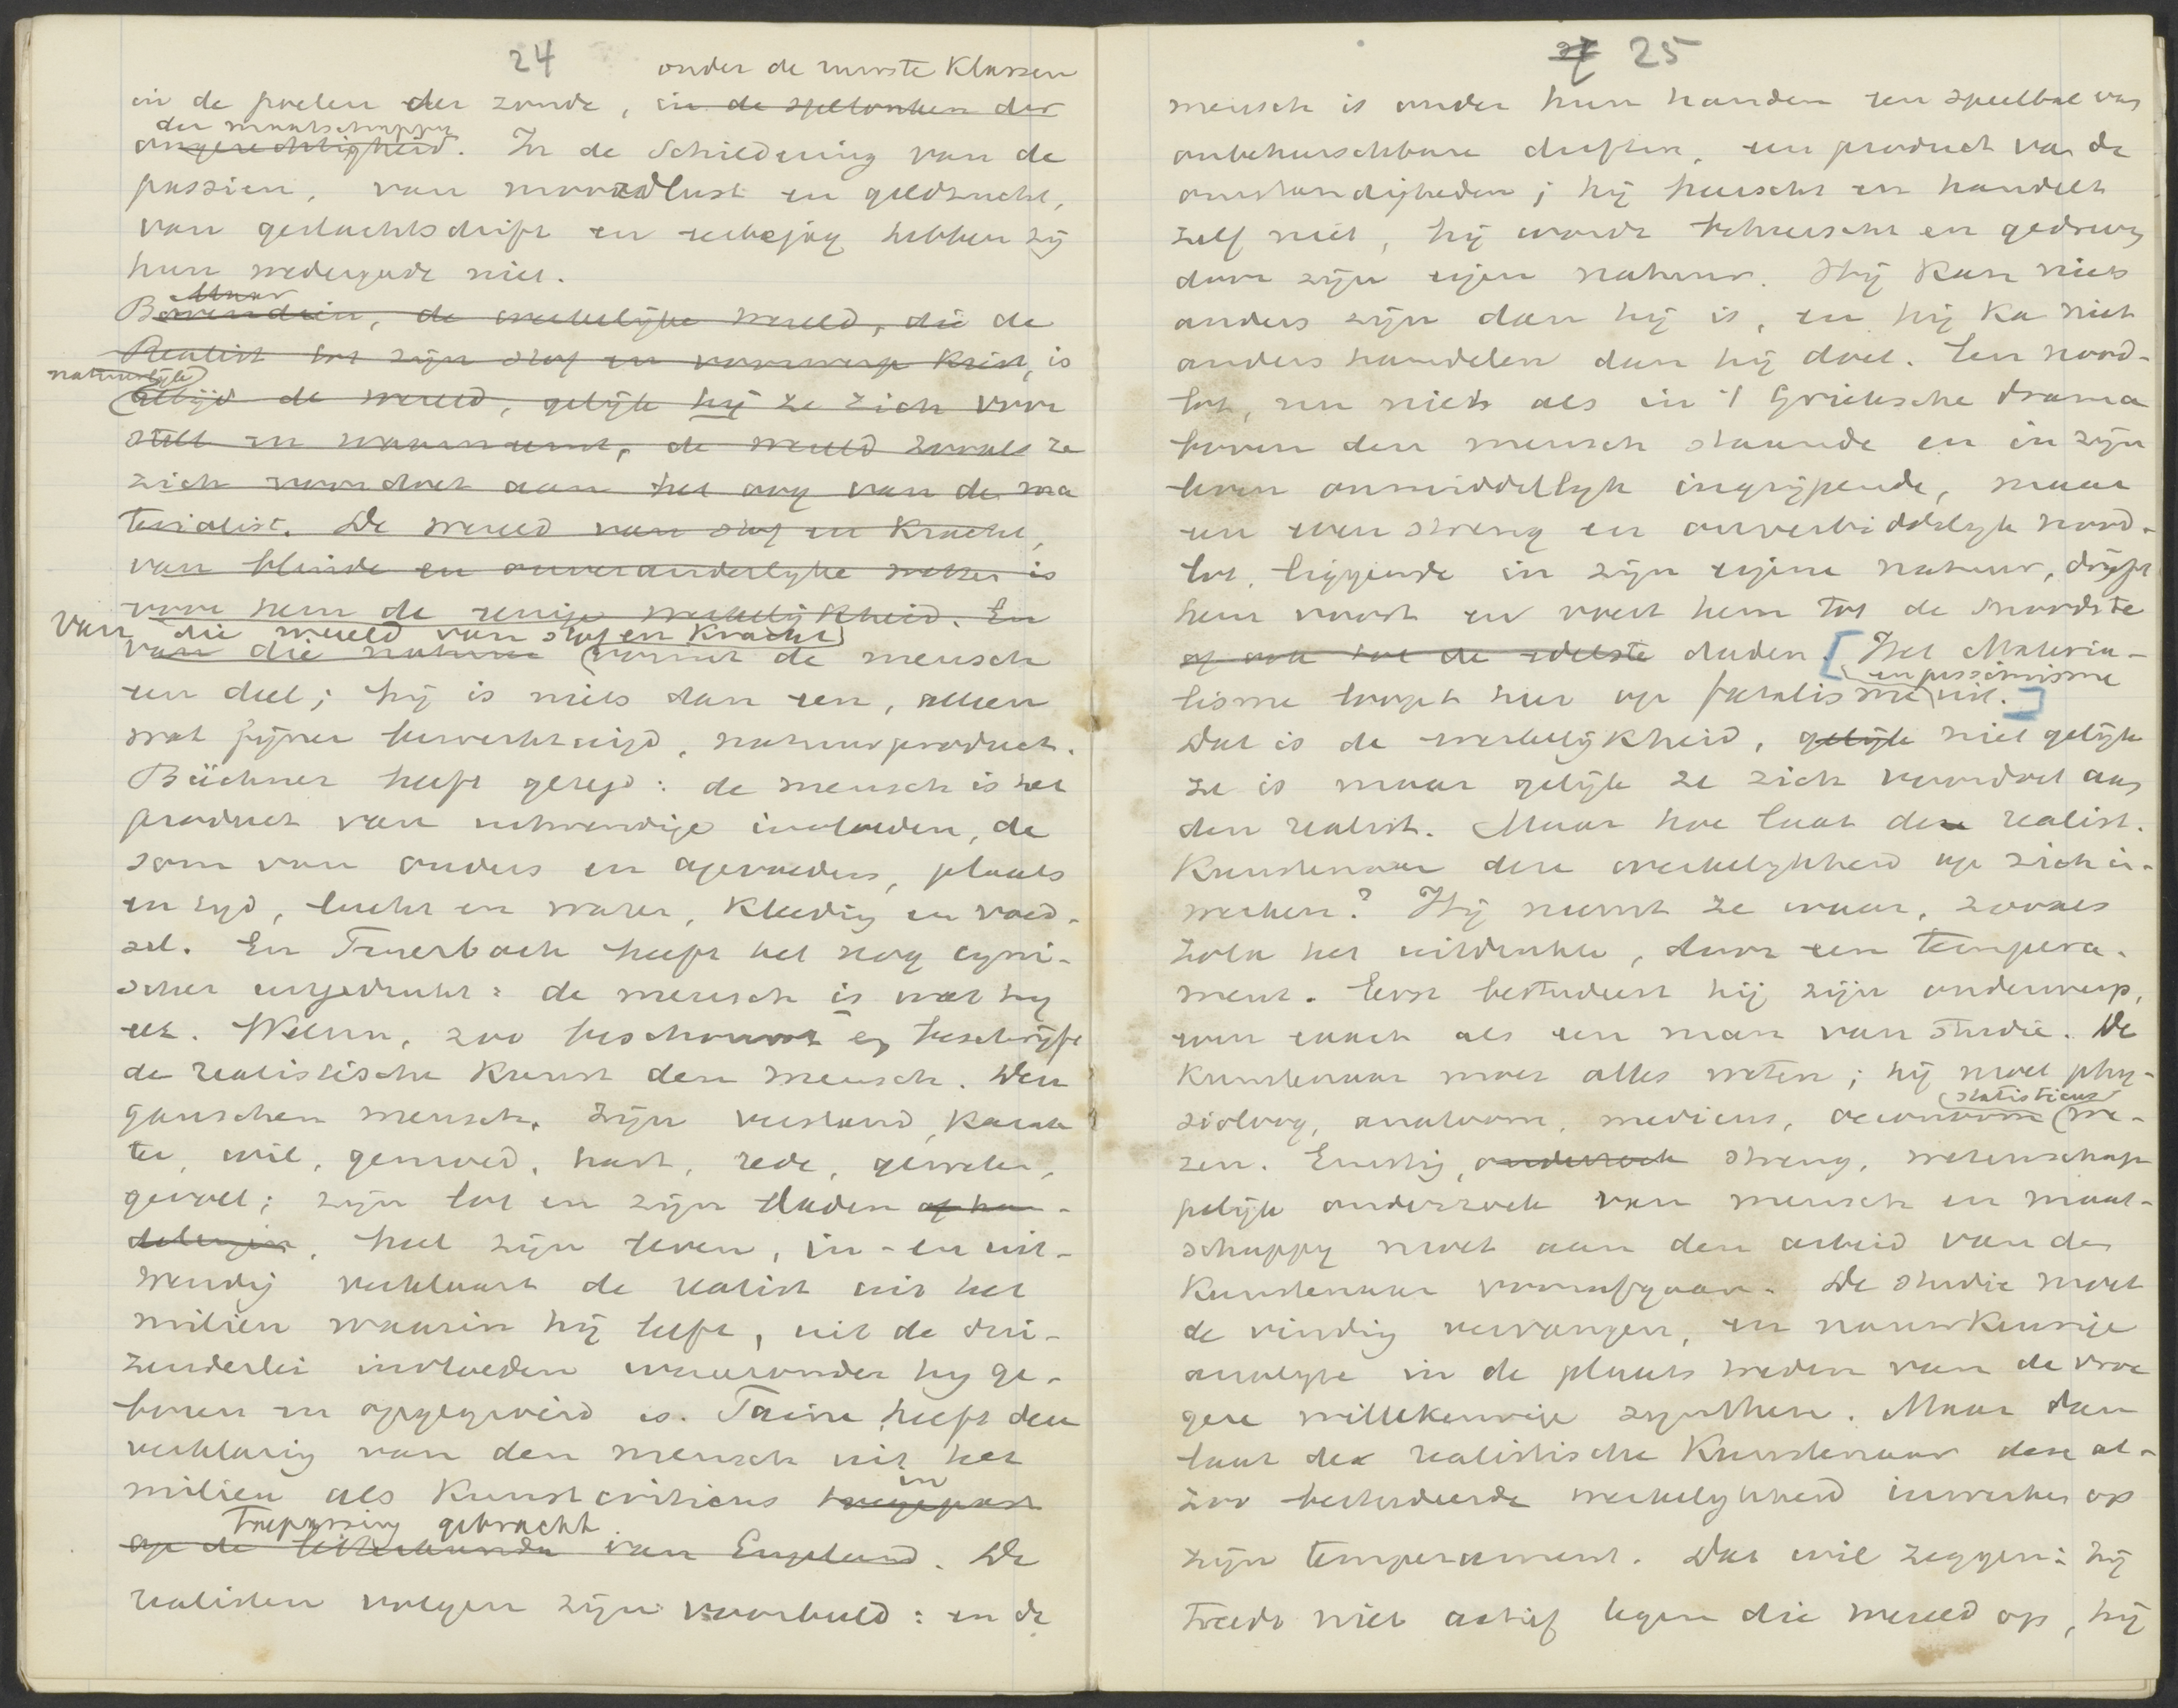 24
onder de ruwste klassen
in de poelen der zonde, in de spelonken der
der maatschappij
ongerechtigheid. In de Schildering van de
passien, van moordlust en geldzucht,
van geslachtsdrift en eerbejag hebben zij
hun wedergade niet.
Maar
Bovendien, de werkelijke wereld, die de
Realist tot zijn stof en voorwerp kiest, is
natuurlijk
altijd de wereld, gelijk hij ze zich voor
stelt en waarneemt, de wereld zooals ze
zich voordoet aan het oog van de ma
terialist. De wereld van stof en kracht,
van blinde en onveranderlijke wetten is
voor hem de eenige werkelijkheid. En
Van die wereld van stof en kracht
van die natuur vormt de mensch
een deel; hij is niets dan een, alleen
wat fijner bewerktuigd, natuurproduct.
Büchner heeft gezegd: de mensch is het
product van uitwendige invloeden, de
som van ouders en opvoeders, plaats
en tijd, lucht en water, kleeding en voed-
sel. En Feuerbach heeft het nog cyni-
scher uitgedrukt: de mensch is wat hij
eet. Welnu, zoo beschouwt en beschrijft
de realistische kunst den mensch. Den
ganschen mensch, zijn verstand, karak
ter, wil, gemoed, hart, rede, geweten,
gevoel; zijn lot en zijn daden of han-
delingen, heel zijn leven, in- en uit-
wendig verklaart de realist uit het
milieu waarin hij leeft, uit de dui-
zenderlei invloeden waaronder hij ge-
boren en opgegroeid is. Taine heeft deze
verklaring van den mensch uit het
milieu als kunstcriticus toegepast
in
toepassing gebracht
op de letterkunde van Engeland. De
realisten volgen zijn voorbeeld: en de
25
mensch is onder hun handen een speelbal van
onbeheerschbare driften, een product van de
omstandigheden; hij heerscht en handelt
zelf niet, hij wordt beheerscht en gedreven
door zijn eigen natuur. Hij kan niets
anders zijn dan hij is, en hij kan niet
anders handelen dan hij doet. Een nood-
lot, nu niet als in 't Grieksche drama
boven den mensch staande en in zijn
leven onmiddellijk ingrijpende, maar
een even streng en onverbiddelijk nood-
lot, liggende in zijn eigene natuur, drijft
hem voort en voert hem tot de snoodste
of ook tot de edelste daden. [Het Materia-
en pessimisme
lisme loopt hier op fatalisme uit.]
Dat is de werkelijkheid, gelijk niet gelijk
ze is maar gelijk ze zich voordoet aan
den realist. Maar hoe laat deze realist.
kunstenaar deze werkelijkheid op zich in-
werken? Hij neemt ze waar, zooals
Zola het uitdrukte, door een tempera-
ment. Eerst bestudeert hij zijn onderwerp,
even exact als een man van studie. De
kunstenaar moet alles weten; hij moet phy-
statisticus
sioloog, anatoom, medicus, oeconoom we-
zen. Ernstig, onderzoek streng, wetenschap
pelijk onderzoek van mensch en maat-
schappij moet aan den arbeid van den
kunstenaar voorafgaan. De studie moet
de vinding vervangen, en nauwkeurige
analyse in de plaats treden van de vroe
gere willekeurige synthese. Maar dan
laat de realistische kunstenaar deze al-
zoo bestudeerde werkelijkheid inwerken op
zijn temperament. Dat wil zeggen: hij
treedt niet actief tegen die wereld op, hij